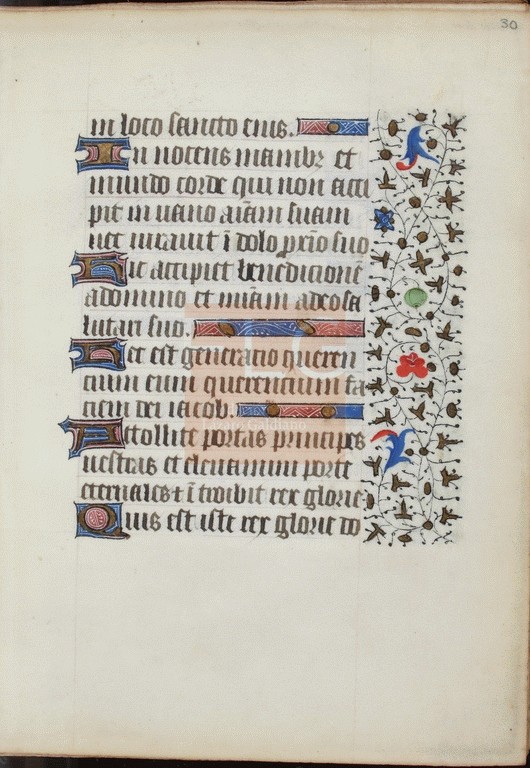 30
in loco sancto eius.
In nocens manibz et
mundo corde qui non acci
pit in uano aīam suam
nec iurauit ī dolo pxīo suo
Hic accipiet benedictionē
adomino et mīam adeo sa
lutari suo.
Hec est generatio queren
cium eum querencium fa
ciem dei iacob.
Attollite portas principes
uestras et eleuamini porte
eternales & ītroibit rex glorie
Quis est iste rex glorie do
Lázaro Galdiano